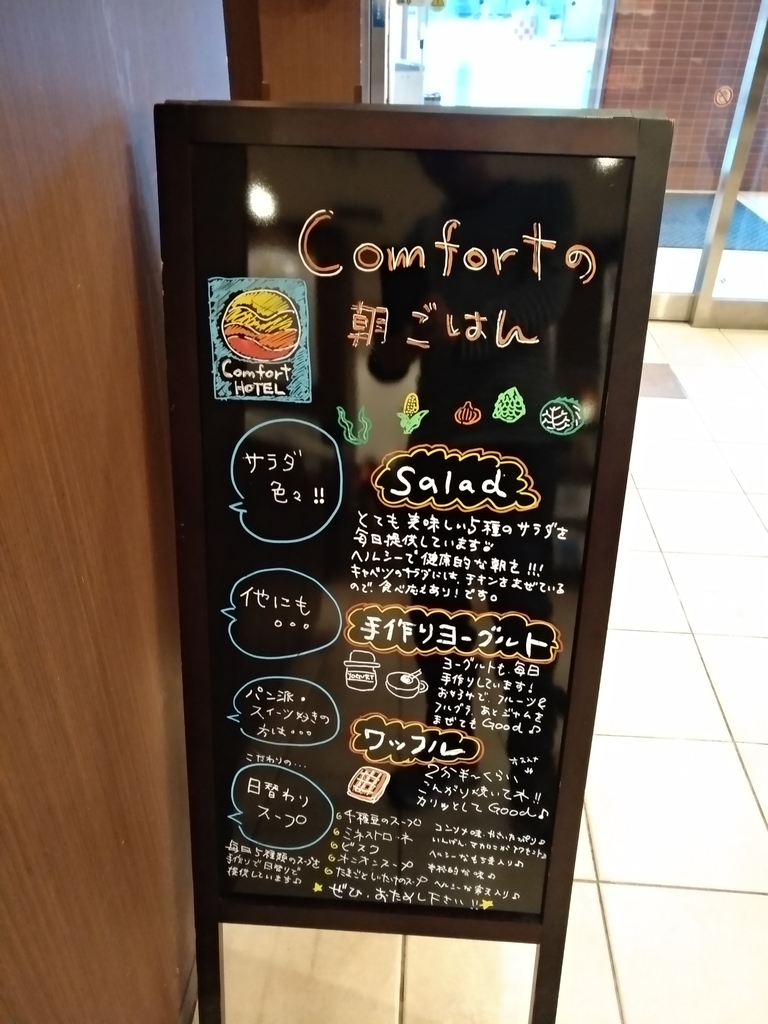 Comfortの
朝ごはん
Comfort
HOTEL
サラダ
色々!!
Salad
とても美味しい5種のサラダを
毎日提供しています
ヘルシーで健康的な朝を!!!
キャベツのサラダには、チキンをまぜている
ので、食べ応えあり!です。
他にも
。。。
手作りヨーグルト
YOGURT
ヨーグルトも、毎日
手作りしています!
お好みで、フルーツや
フルグラ、あとジャムを
まぜてもGood♪
パン派・
スイーツ好きの
方は・・・
ワッフル
2分半〜くらい
こんがり焼いて
カリッとしてGood♪
こだわりの...
日替わり
スープ
毎日5種類のスープを
手作りで日替りで
提供しています♪
千種豆のスープ
ミネストローネ
ビスク
オニオンスープ
たまごとしいたけのスープ
本格的な味♪
ぜひ、おためし下さい!!